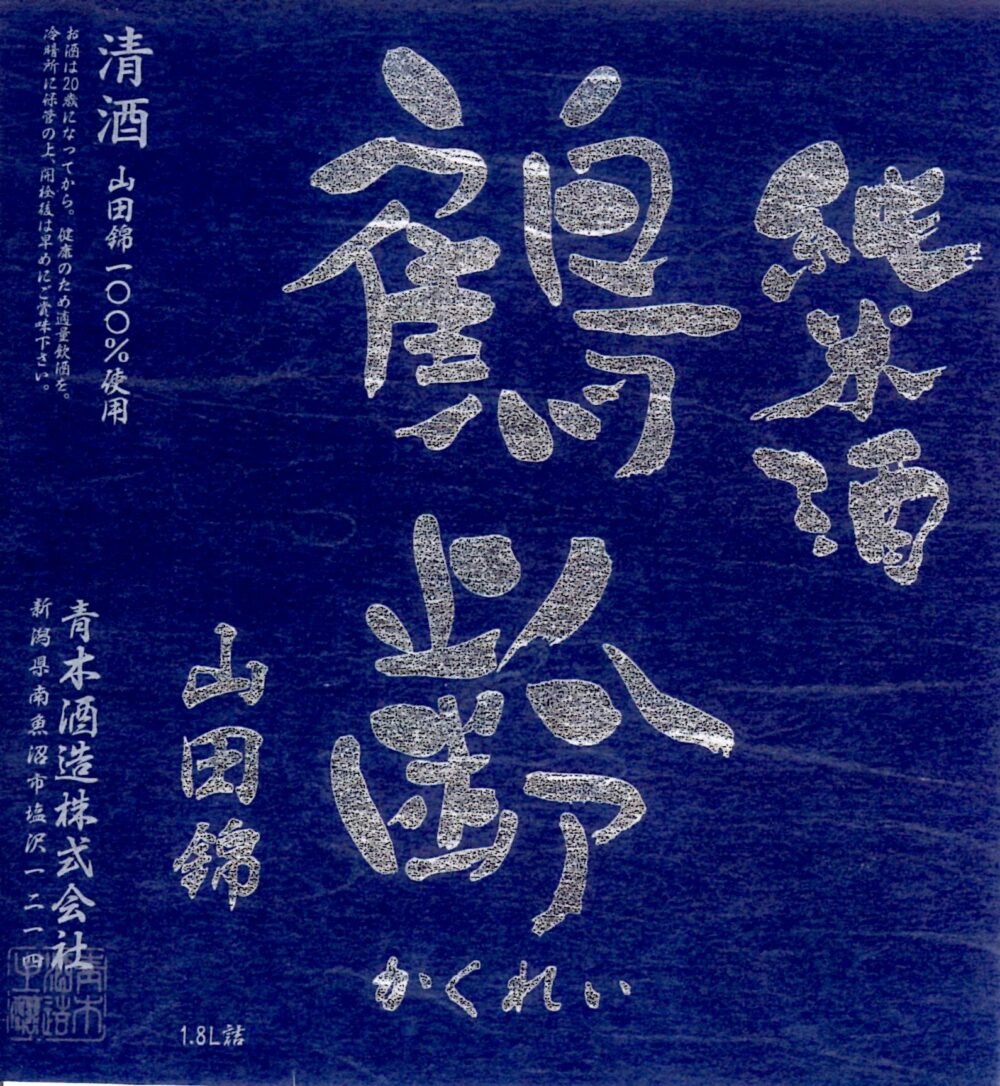 純米酒
鶴齢
かくれい
山田錦
清酒 山田錦一〇〇%使用
お酒は20歳になってから。健康のため適量飲酒を。
冷暗所に保管の上、開栓後は早めにご賞味下さい。
青木酒造株式会社
新潟県南魚沼市塩沢一二一四
1.8L詰